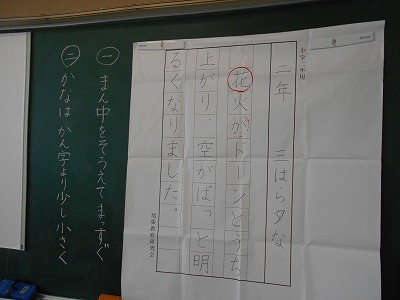 小学二年用
二年 三はら夕な
花火がドーンとうち
上がり、空がぱっと明
るくなりました。
尾張教育研究会
一 まん中をそろえてまっすぐ
二 かなは かん字より少し小さく